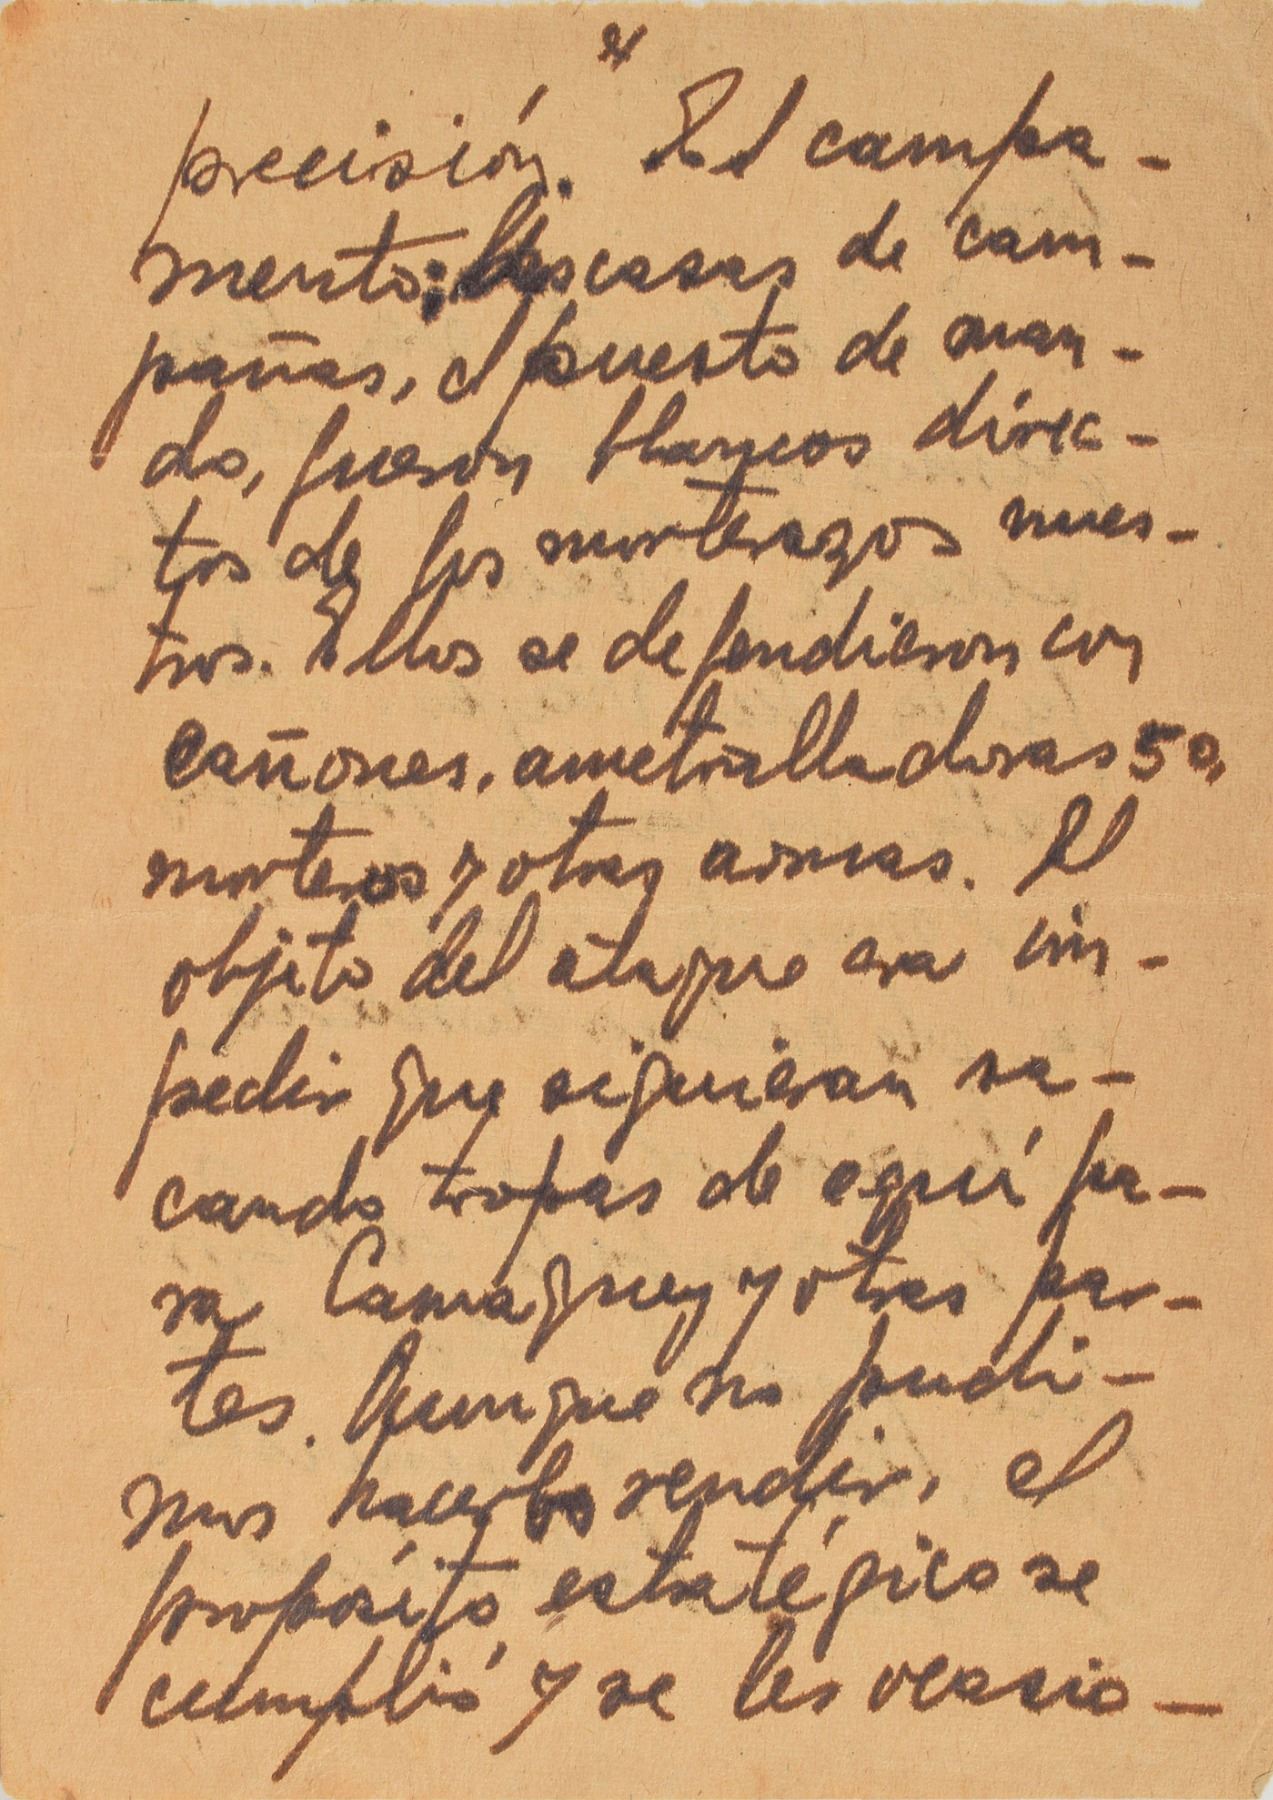 precisión. El campa-
mento; las casas de cam-
pañas, el puesto de man-
do, fueron blancos direc-
tos de los morterazos nues-
tros. Ellos se defendieron con
cañones, ametralladoras 50,
morteros y otras armas. El
objeto del ataque era im-
pedir que siguieran sa-
cando tropas de aquí pa-
ra Camaguey y otras par-
tes. Aunque no pudi-
mos hacerlos rendir, el
propósito estratégico se
cumplió y se les ocasio-